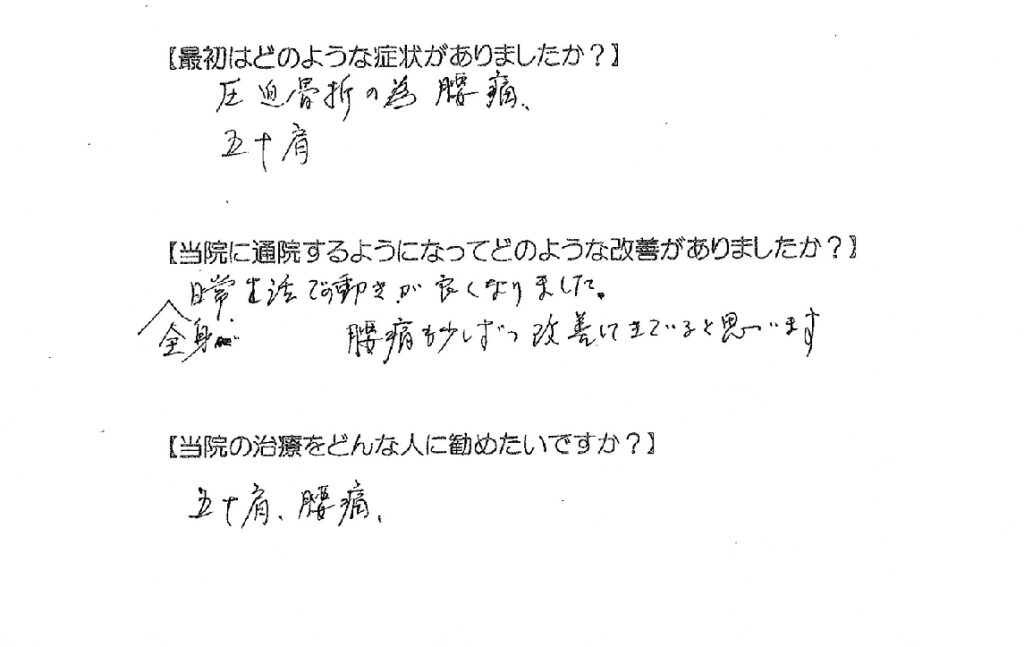 【最初はどのような症状がありましたか？】
圧迫骨折の為 腰痛、
五十肩
【当院に通院するようになってどのような改善がありましたか？】
日常生活での動きが良くなりました。
全身
腰痛も少しずつ改善してきていると思います
【当院の治療をどんな人に勧めたいですか？】
五十肩、腰痛、